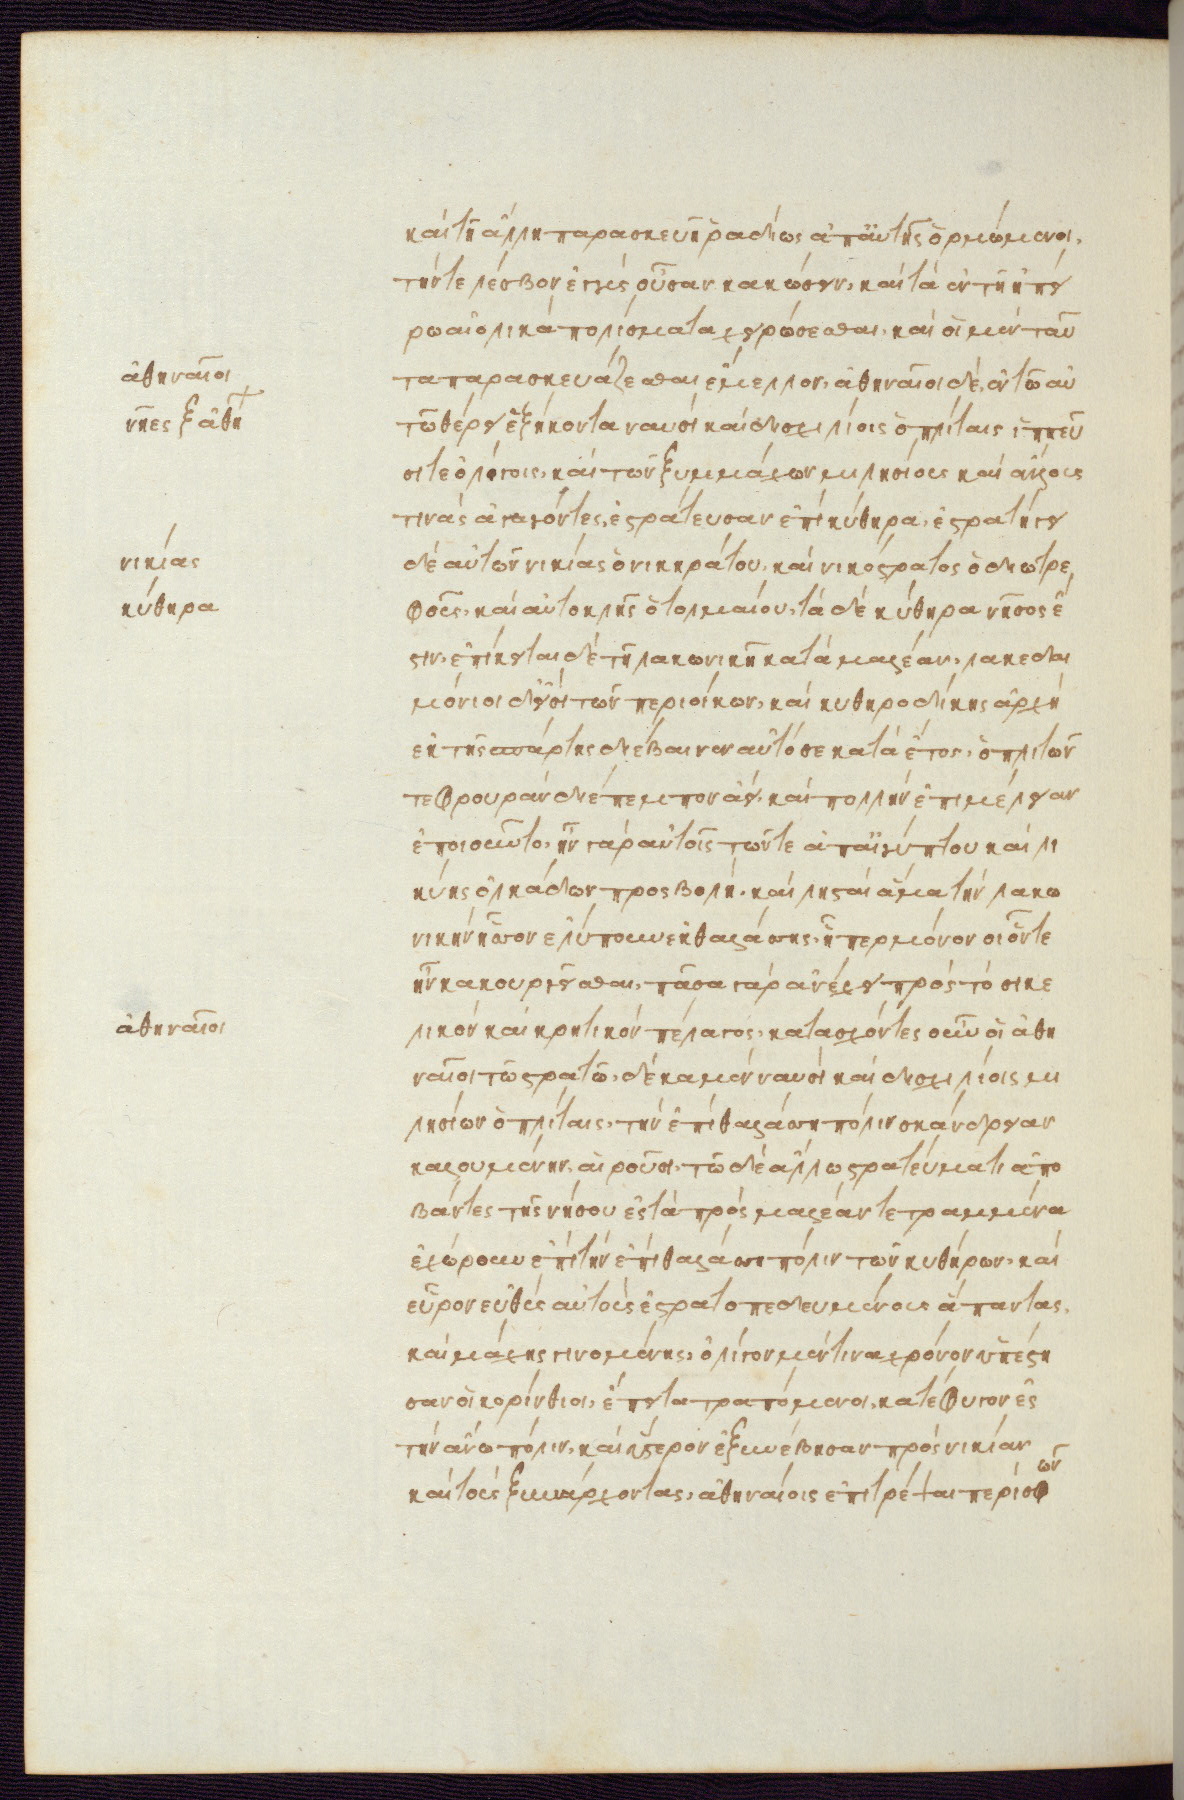 καὶ τῇ ἄλλῃ παρασκευῇ ῥαδίως ἀπ' αὐτῆς ὁρμώμενοι,
τήν τε λέσβον ἐγγὺς οὖσαν κακώσειν, καὶ τὰ ἐν τῇ ἠπεί
ρω αἰολικὰ πολίσματα χειρώσεσθαι. καὶ οἱ μὲν ταῦ
ἀθηναῖοι
τα παρασκευάζεσθαι ἔμελλον, ἀθηναῖοι δὲ, ἐν τῷ αὐ
νῆες ξ ἀθη
τῷ θέρει ἑξήκοντα ναυσὶ καὶ δισχιλίοις ὁπλίταις ἱππεῦ
σί τε ὀλίγοις, καὶ τῶν ξυμμάχων μιλησίους καὶ ἄλλους
τινὰς ἀγαγόντες, ἐστράτευσαν ἐπὶ κύθηρα, ἐστρατήγει
νικίας
δὲ αὐτῶν νικίας ὁ νικηράτου, καὶ νικόστρατος ὁ διωτρε
κύθηρα
φοῦς, καὶ αὐτοκλῆς ὁ τολμαίου, τὰ δὲ κύθηρα νῆσος ἐ
στιν, ἐπίκειται δὲ τῇ λακωνικῇ κατὰ μαλέαν, λακεδαι
μόνιοι δ' εἰσὶ τῶν περιοίκων, καὶ κυθηροδίκης ἀρχὴ
ἐκ τῆς σπάρτης διέβαινεν αὐτόσε κατὰ ἔτος, ὁπλιτῶν
τε φρουρὰν διέπεμπον ἀεὶ, καὶ πολλὴν ἐπιμέλειαν
ἐποιοῦντο, ἦν γὰρ αὐτοῖς τῶν τε ἀπ' αἰγύπτου καὶ λι
βύης ὁλκάδων προσβολὴ, καὶ λῃσταὶ ἅμα τὴν λακω
νικὴν ἧσσον ἐλύπουν ἐκ θαλάσσης, ᾗπερ μόνον οἷόν τε
ἦν κακουργεῖσθαι, πᾶσα γὰρ ἀνέχει πρὸς τὸ σικε
ἀθηναῖοι
λικὸν καὶ κρητικὸν πέλαγος, κατασχόντες οὖν οἱ ἀθη
ναῖοι τῷ στρατῷ, δέκα μὲν ναυσὶ καὶ δισχιλίοις μι
λησίων ὁπλίταις, τὴν ἐπὶ θαλάσσῃ πόλιν σκάνδειαν
καλουμένην, αἱροῦσι, τῷ δὲ ἄλλω στρατεύματι ἀπο
βάντες τῆς νήσου ἐς τὰ πρὸς μαλέαν τετραμμένα
ἐχώρουν ἐπὶ τὴν ἐπὶ θαλάσσῃ πόλιν τῶν κυθήρων, καὶ
εὗρον εὐθὺς αὐτοὺς ἐστρατοπεδευμένους ἅπαντας,
καὶ μάχης γινομένης, ὀλίγον μέν τινα χρόνον ὑπέστη
σαν οἱ κορίνθιοι, ἔπειτα τραπόμενοι, κατέφυγον ἐς
τὴν ἄνω πόλιν, καὶ ὕστερον ἐξυνέβησαν πρὸς νικίαν
καὶ τοὺς ξυνάρχοντας, ἀθηναίοις ἐπιτρέψαι περὶ σφῶν